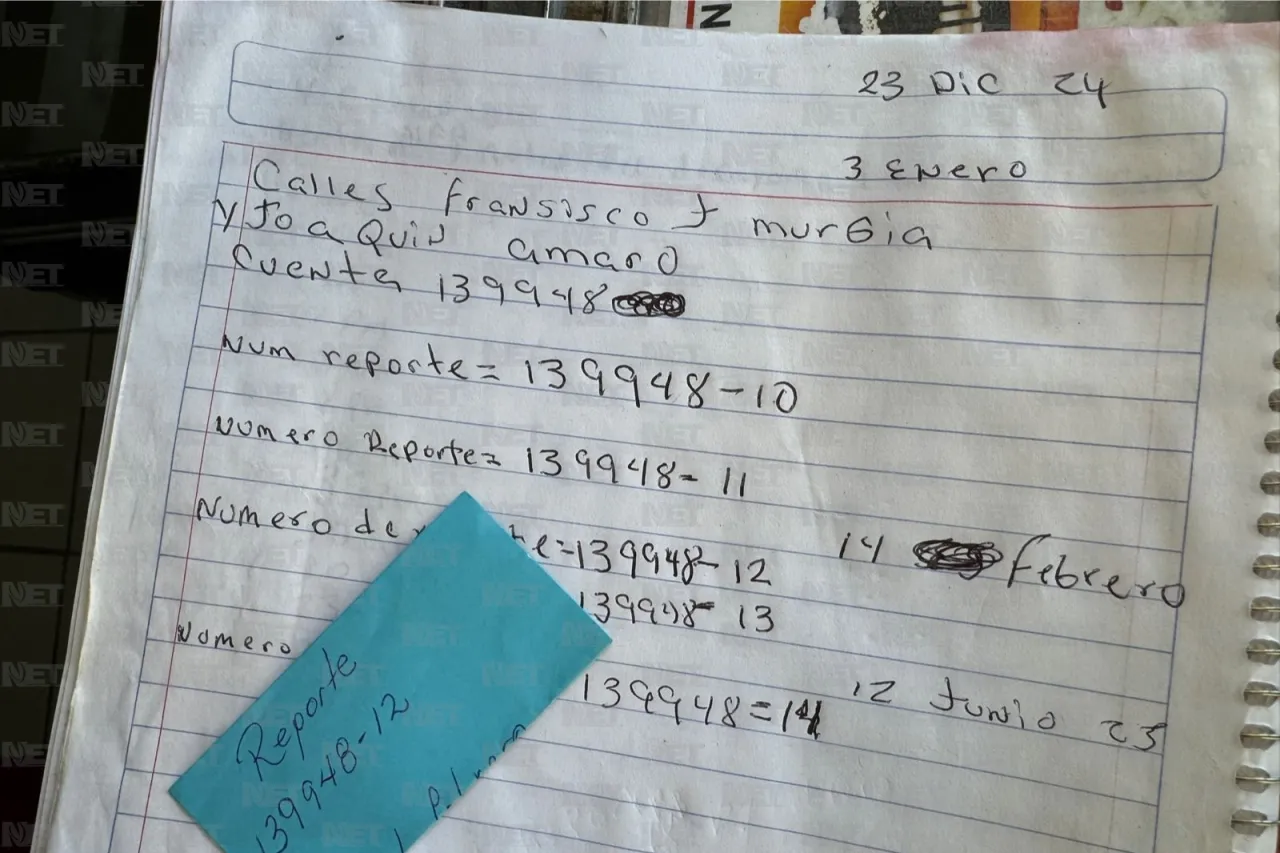 23 Dic 24
3 Enero
Calles fransisco J murGia
y JoaQuin amaro
Cuenta 139948
Num reporte= 139948-10
Numero Reporte= 139948- 11
Numero de te=139948- 12 14 febrero
139948- 13
Numero
139948=14 12 Junio 25
Reporte
139948-12
NET